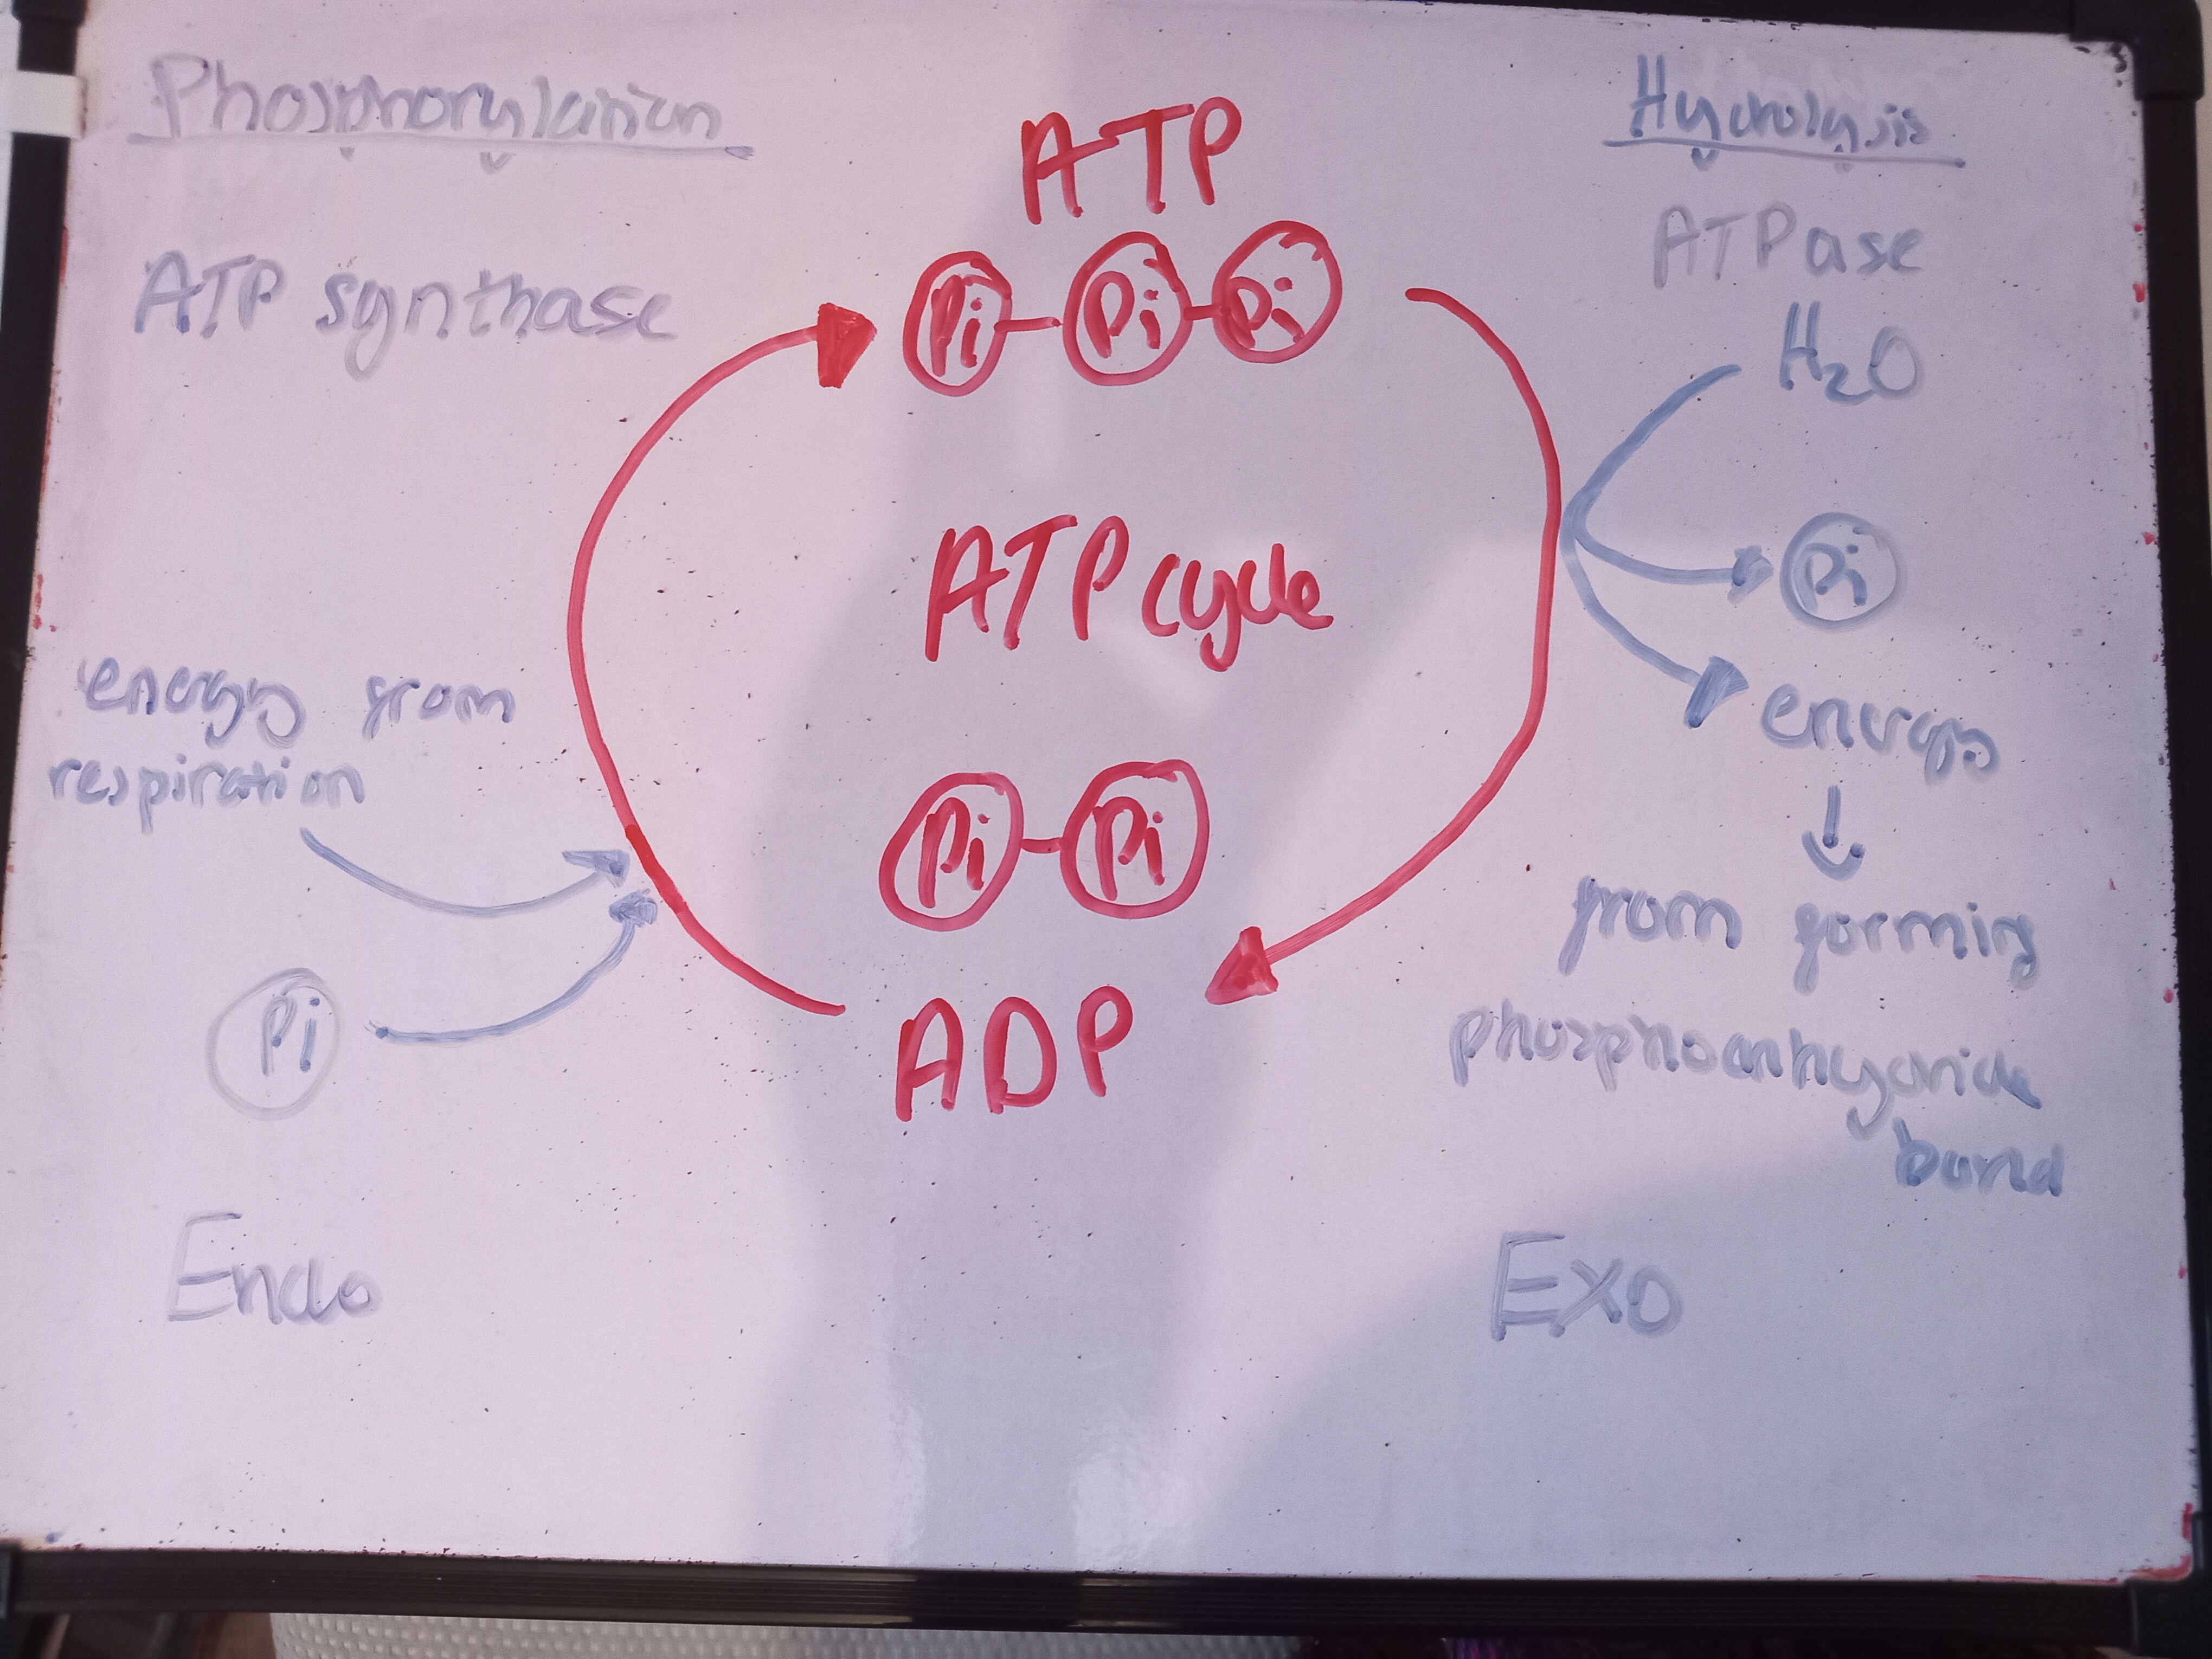 Phosphorylation
ATP synthase
energy from
respiration
Pi
Endo
ATP
Pi Pi Pi
ATP cycle
Pi Pi
ADP
Hydrolysis
ATPase
H₂O
Pi
energy
from forming
phosphoanhydride
bond
Exo